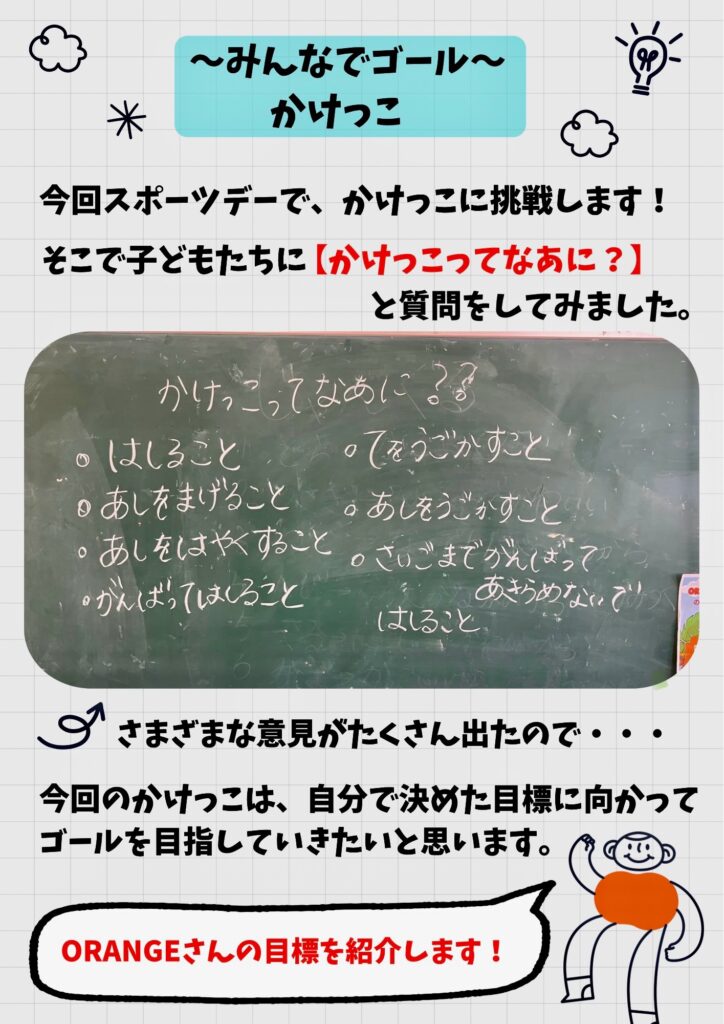 ～みんなでゴール～
かけっこ
今回スポーツデーで、かけっこに挑戦します！
そこで子どもたちに【かけっこってなあに？】
と質問をしてみました。
かけっこってなあに??
○ はしること
○ あしをまげること
○ あしをはやくすること
○ がんばってはしること
○ てをうごかすこと
○ あしをうごかすこと
○ さいごまでがんばって
あきらめないで
はしること
さまざまな意見がたくさん出たので・・・
今回のかけっこは、自分で決めた目標に向かって
ゴールを目指していきたいと思います。
ORANGEさんの目標を紹介します！